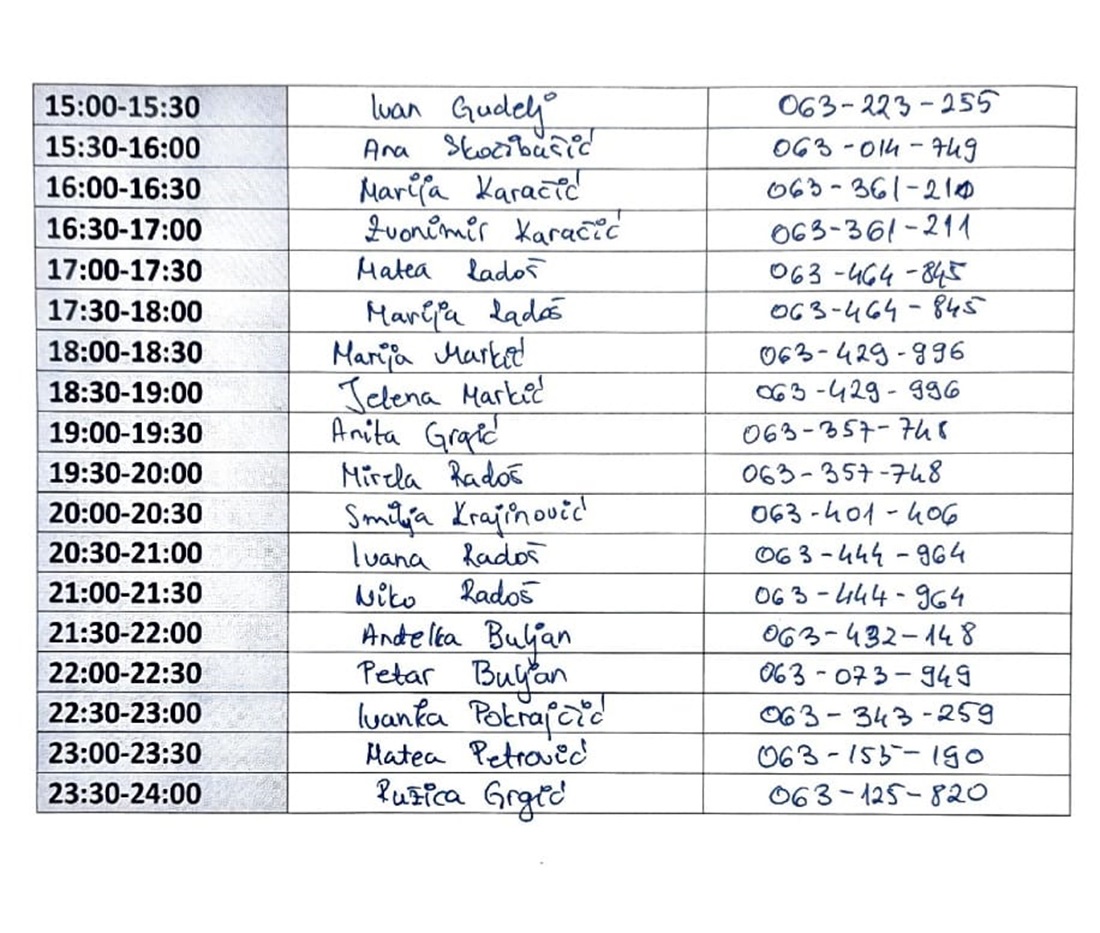 15:00-15:30 Ivan Gudelj 063-223-255
15:30-16:00 Ana Skočibušić 063-014-749
16:00-16:30 Marija Karačić 063-361-210
16:30-17:00 Zvonimir Karačić 063-361-211
17:00-17:30 Matea Radoš 063-464-845
17:30-18:00 Marija Radoš 063-464-845
18:00-18:30 Marija Markić 063-429-996
18:30-19:00 Jelena Markić 063-429-996
19:00-19:30 Anita Grgić 063-357-748
19:30-20:00 Mirela Radoš 063-357-748
20:00-20:30 Smilja Krajinović 063-401-406
20:30-21:00 Ivana Radoš 063-444-964
21:00-21:30 Niko Radoš 063-444-964
21:30-22:00 Anđelka Buljan 063-432-148
22:00-22:30 Petar Buljan 063-073-949
22:30-23:00 Ivanka Pokrajčić 063-343-259
23:00-23:30 Matea Petrović 063-155-190
23:30-24:00 Ružica Grgić 063-125-820